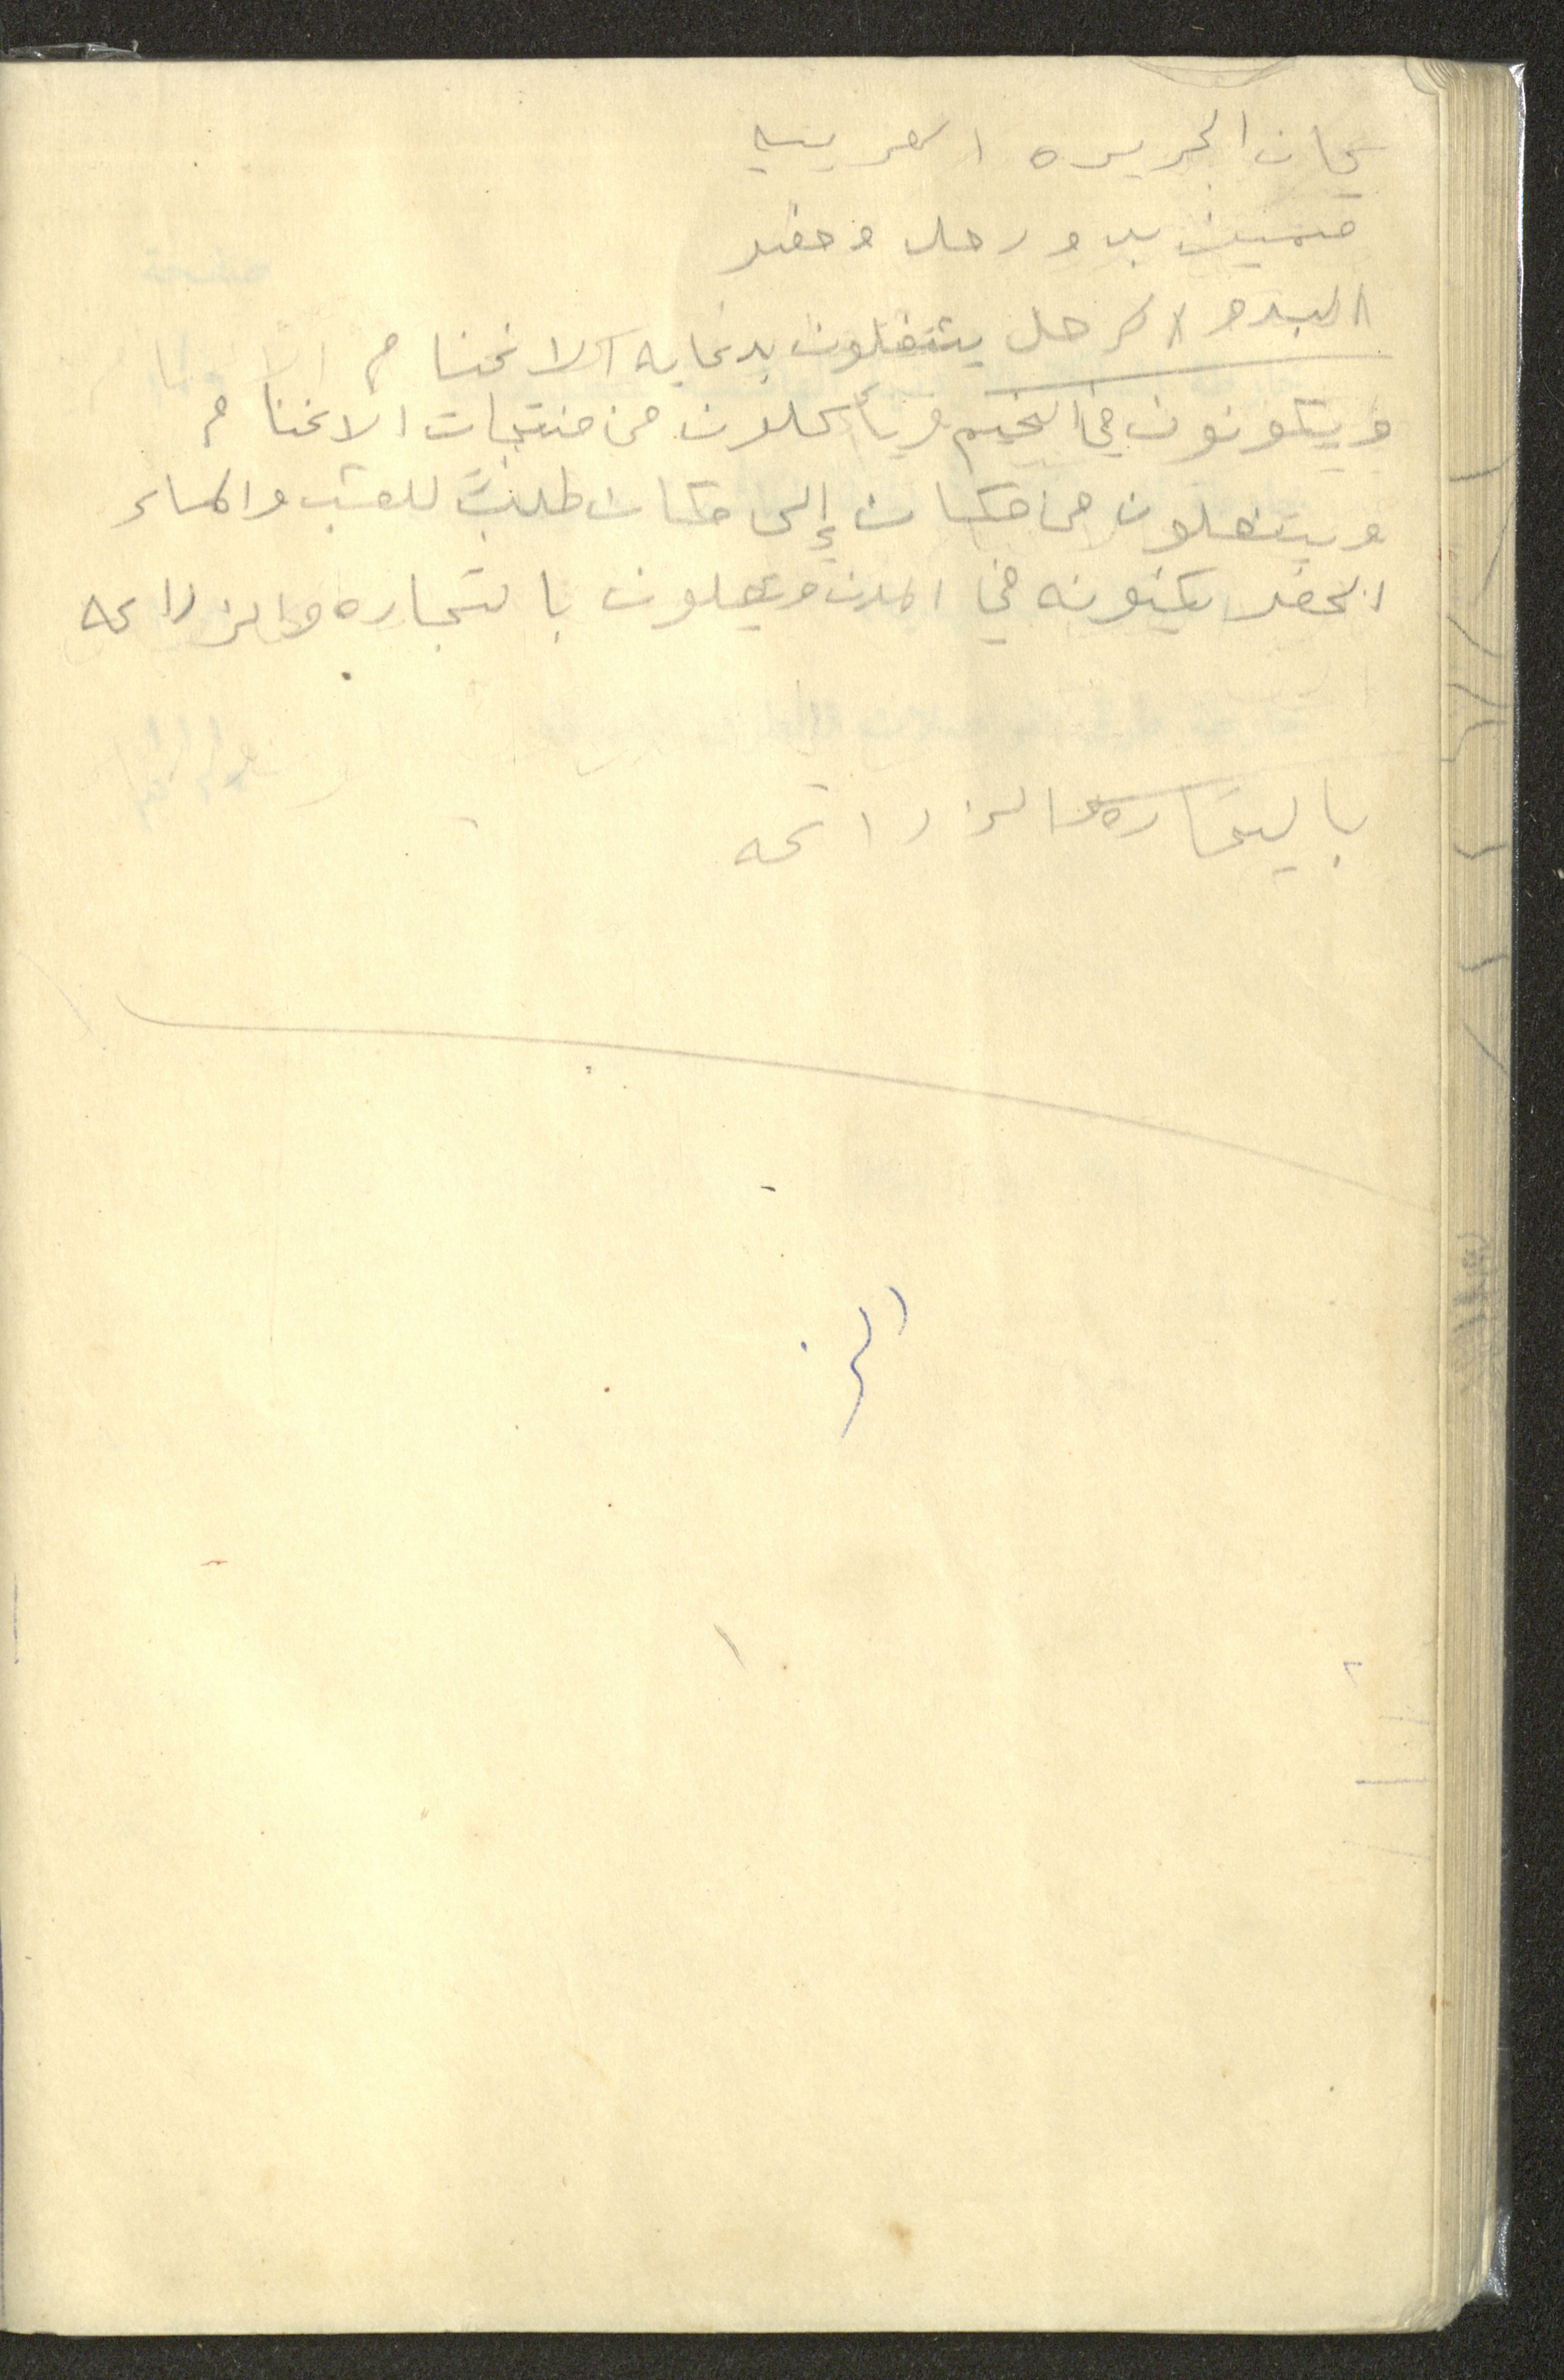 سكان الجزيره العربيه
قسمين بدو رحل وحضر
البدو الرحل يشتغلون برعايه الاغنام
ويكونون في الخيم ويأكلون من منتجات الاغنام
ويتنقلون من مكان إلى مكان طلبً للعشب والماء
الحضر يكنونه في المدن ويعملون بالتجاره والزراعه
بالتجاره والزراعه
الز